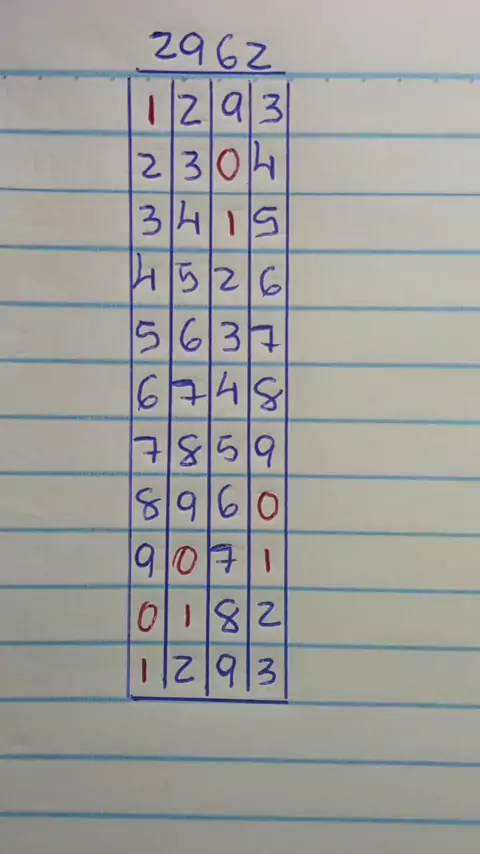 2962
1 2 9 3
2 3 0 4
3 4 1 5
4 5 2 6
5 6 3 7
6 7 4 8
7 8 5 9
8 9 6 0
9 0 7 1
0 1 8 2
1 2 9 3